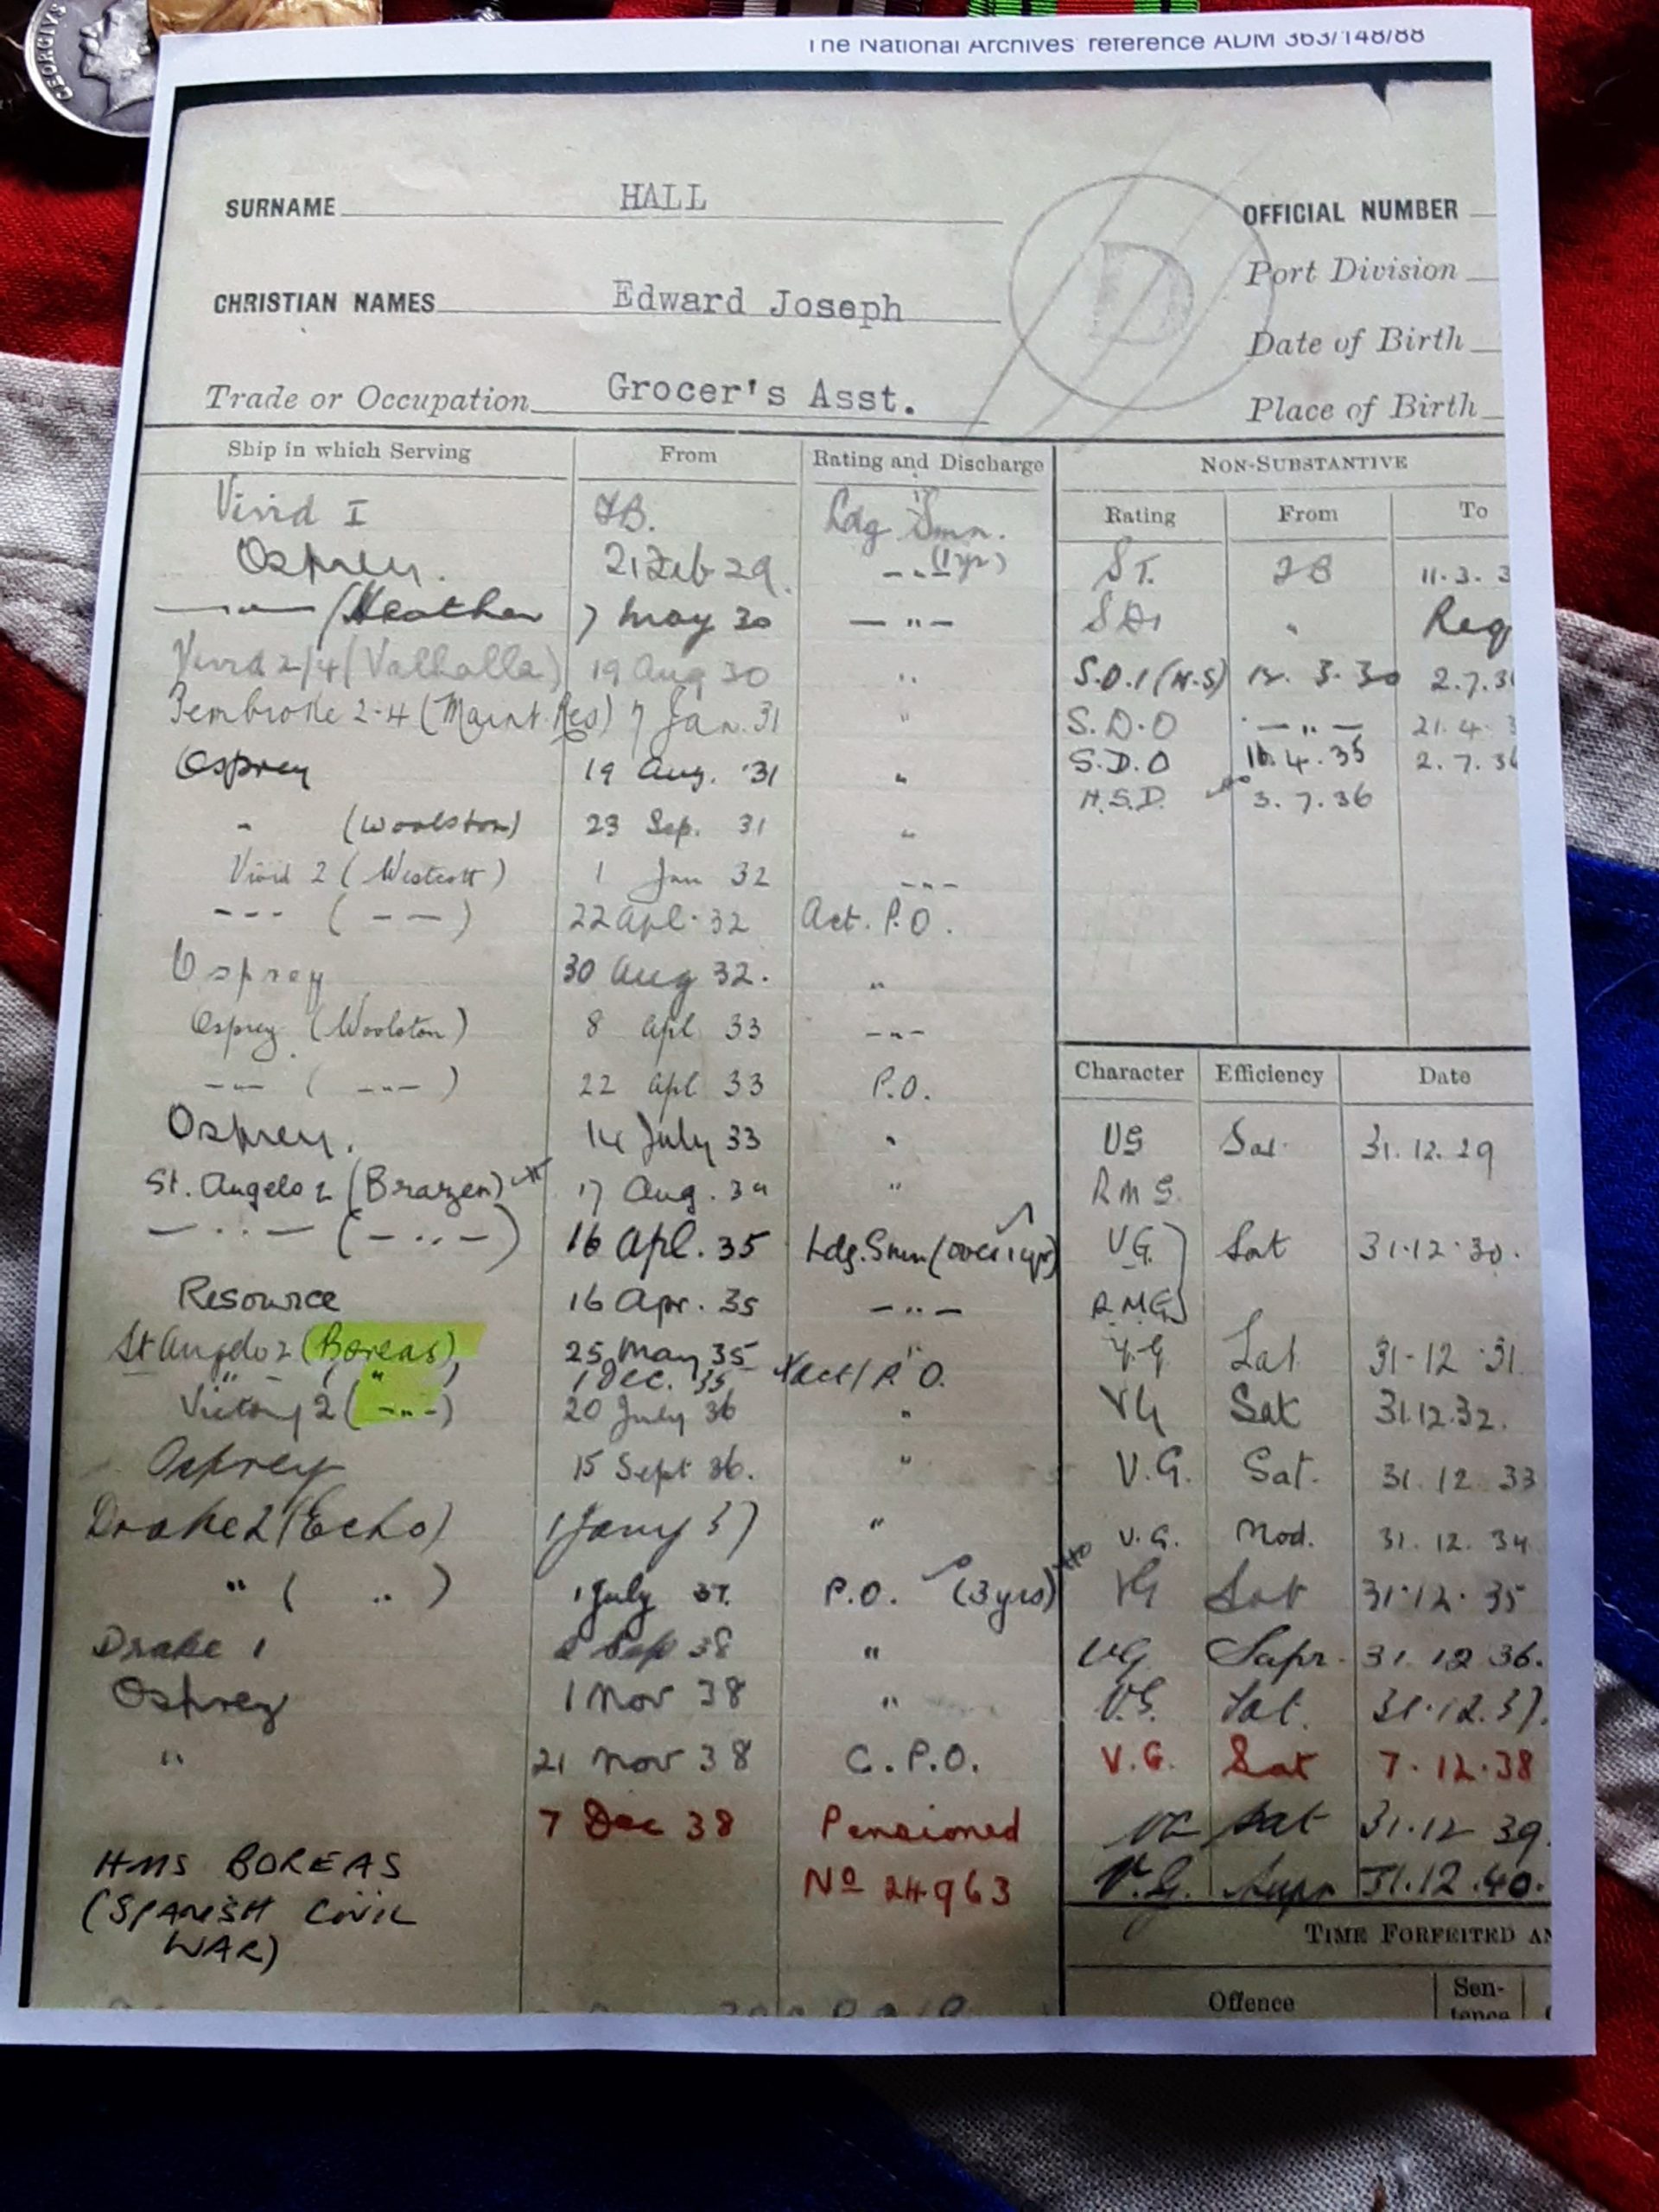 GEORGIVS
The National Archives' reference ADM 363/148/88
SURNAME HALL
OFFICIAL NUMBER
D
Port Division
CHRISTIAN NAMES Edward Joseph
Date of Birth
Trade or Occupation Grocer's Asst.
Place of Birth
Ship in which Serving From Rating and Discharge
Vivid I Ldg Smn.
Osprey. 21 Feb 29. -"- (1yr)
—"— / Heather 7 May 30 —"—
Vivid 2/4 (Valhalla) 19 Aug 30 "
Pembroke 2-4 (Maint. Res) 7 Jan. 31 "
Osprey 19 Aug. 31 "
" (Woolston) 23 Sep. 31 "
Vivid 2 (Westcott) 1 Jan 32 -"-
-"- ( -"- ) 22 Apl. 32 Act. P.O.
Osprey 30 Aug 32. "
Osprey (Woolston) 8 Apl 33 -"-
-"- ( -"- ) 22 Apl 33 P.O.
Osprey. 14 July 33 "
St. Angelo 2 (Brazen) 17 Aug. 34 "
—"— (—"—) 16 Apl. 35 Ldg. Smn (over 1 yr)
Resource 16 Apr. 35 —"—
St Angelo 2 (Boreas), 25 May 35 "
" " 1 Dec. 35 Act/P.O.
Victory 2 ( -"- ) 20 July 36 "
Osprey 15 Sept 36. "
Drake 2 (Echo) 1 Jany 37 "
" ( " ) 1 July 37. P.O. (3 yrs)
Drake 1 Sep 38 "
Osprey 1 Nov 38 "
" 21 Nov 38 C.P.O.
7 Dec 38 Pensioned
No 24963
HMS BOREAS
(SPANISH CIVIL
WAR)
NON-SUBSTANTIVE
Rating From To
S.T. 11.3.3
SD1 " Req
S.D.1 (H.S) 12.3.30 2.7.3
S.D.O —"— 21.4.3
S.D.O 16.4.35 2.7.36
H.S.D. 3.7.36
Character Efficiency Date
VG Sat. 31.12.29
RMG.
V.G. Sat 31.12.30.
R.M.G.
V.G Sat 31-12-31
VG Sat 31.12.32.
V.G. Sat. 31.12.33
V.G. Mod. 31.12.34
VG Sat 31.12.35
VG Supr. 31.12.36.
V.G. Sat. 31.12.37.
V.G. Sat 7.12.38
VG Sat 31.12.39.
V.G. Supr 31.12.40.
TIME FORFEITED AN
Offence Sen-
tence